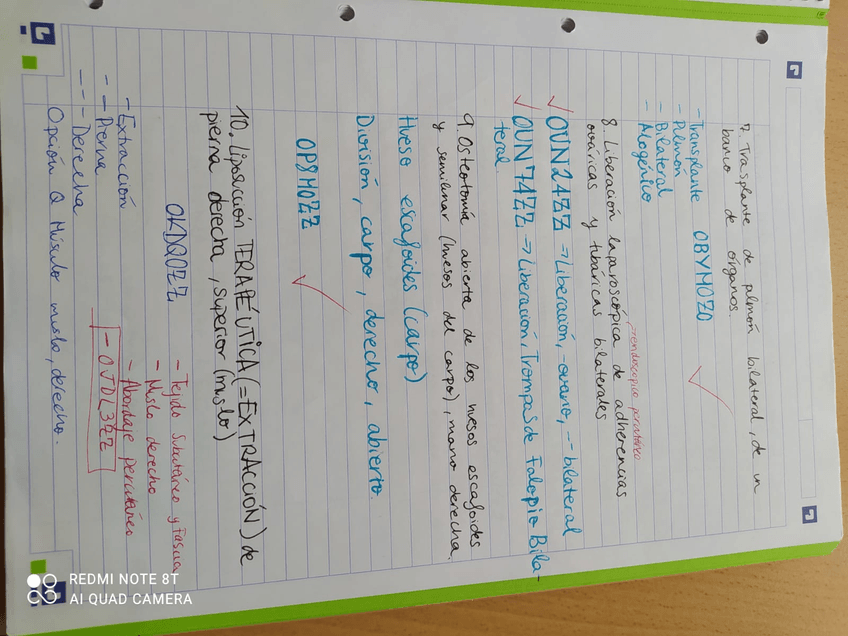 7. Trasplante de pulmón bilateral, de un
banco de órganos.
- Transplante
- Pulmón
- Bilateral
- Alogénico
OBYMOZO
8. Liberación laparoscópica de adherencias
→endoscópico percutáneo
ováricas y tubáricas bilaterales
OUN24ZZ → Liberación, -ovario, -- bilateral
OUN74ZZ → Liberación, Trompas de Falopio Bila-
teral.
9. Osteotomía abierta de los huesos escafoides
y semilunar (huesos del carpo), mano derecha.
Hueso escafoides (carpo)
División, carpo, derecho, abierto.
OP8MOZZ
10. Liposucción TERAPÉUTICA (=EXTRACCIÓN) de
pierna derecha, superior (muslo)
OKDQOZZ
- Tejido Subcutáneo y Fascia
- Muslo derecho
- Abordaje percutáneo
- OJDL3ZZ
- Extracción
- - Pierna
- - - Derecha
Opción Q Músculo muslo, derecho.
REDMI NOTE 8T
AI QUAD CAMERA